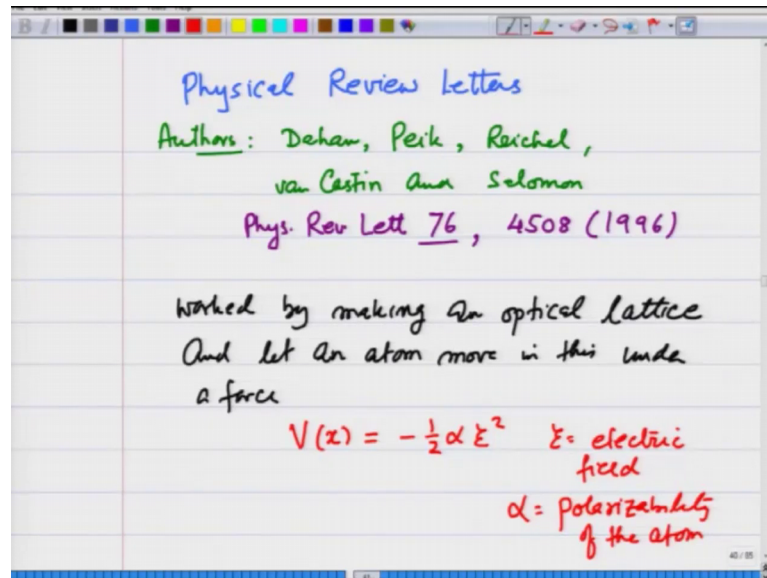 Physical Review Letters
Authors: Dahan, Peik, Reichel,
van Castin and Salomon
Phys. Rev Lett 76, 4508 (1996)
Worked by making an optical lattice
And let an atom move in this under
a force
V(x) = -½αξ² ξ= electric
field
α = polarizability
of the atom
40/95